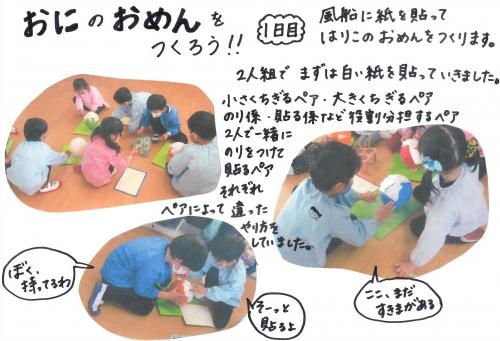 おにのおめんを
つくろう!!
1日目
風船に紙を貼って
はりこのおめんをつくります。
2人組で まずは白い紙を貼っていきました。
小さくちぎるペア・大きくちぎるペア
のり係・貼る係など役割分担するペア
2人で一緒に
のりをつけて
貼るペア
それぞれ
ペアによって違った
やり方を
していました。
ぼく、
持ってるわ
そーっと
貼るよ
ここ、まだ
すきまがある